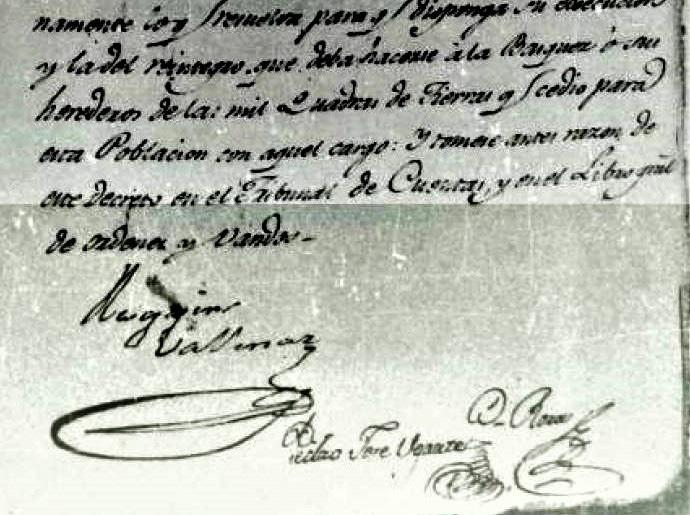 namente lo q.e resuelva para q.e disponga su execucion
y la del reintegro que deba hacerse à la Baiguez ò sus
herederos de las mil Quadras de Tierras q.e cedio para
esta Poblacion con aquel cargo: Y tomese antes razon de
este decreto en el Tribunal de Cuentas, y en el Libro gral
de ordenes y Vandos_
O Higgins
Vallenar
D.r Rosas
Pedro Jose Ugarte